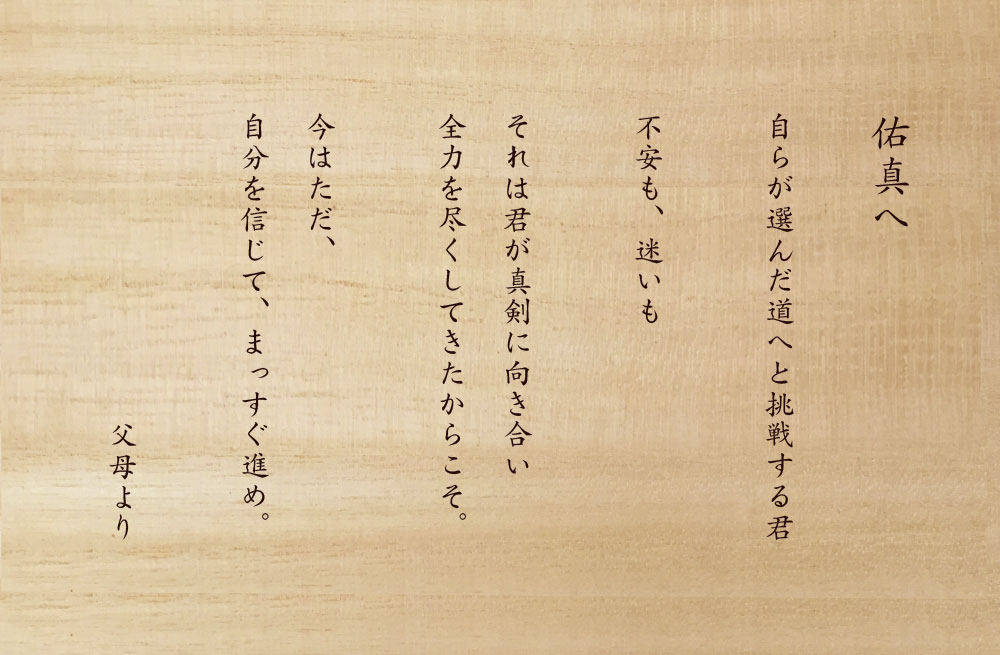 佑真へ
自らが選んだ道へと挑戦する君
不安も、迷いも
それは君が真剣に向き合い
全力を尽くしてきたからこそ。
今はただ、
自分を信じて、まっすぐ進め。
父母より